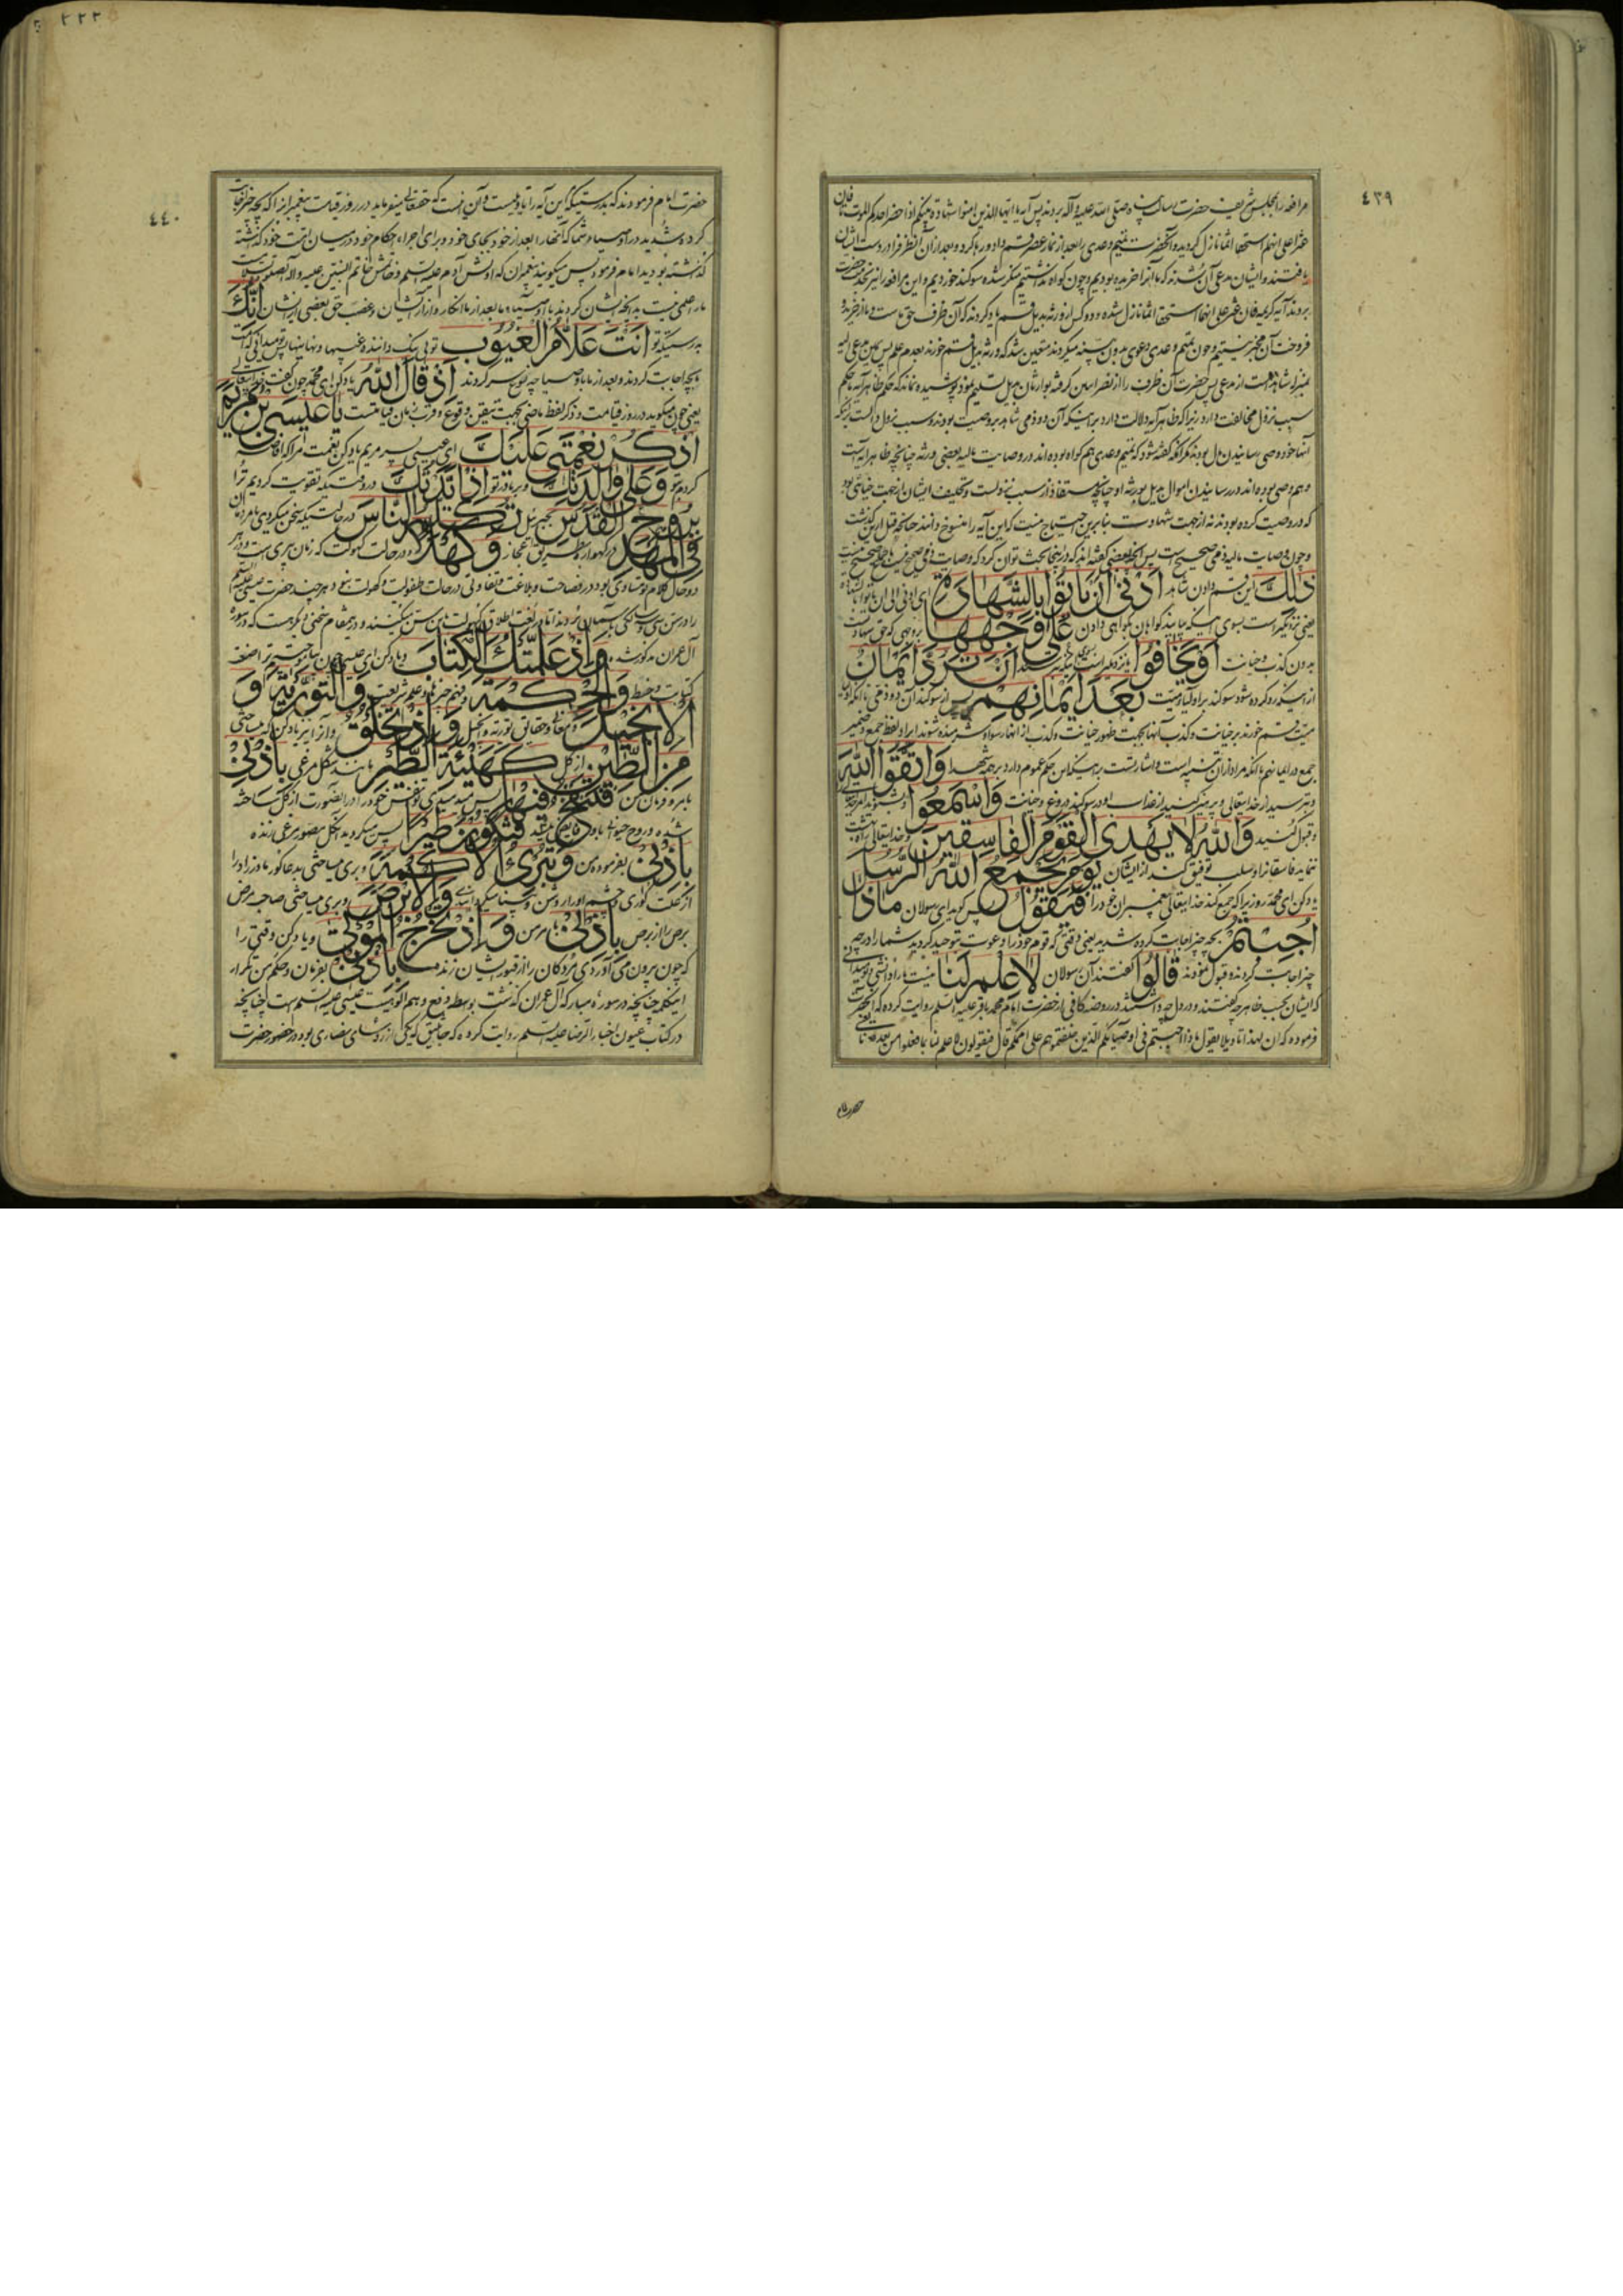 ٤٣٩
مرافعه را بمجلس شریف حضرت رسالت پناه صلی الله علیه و آله بردند پس آیه یا ایها الذین امنوا شهادة بینکم اذا حضر احدکم الموت تا فان
عثر علی انهما استحقا اثما نازل کردید و آنحضرت تمیم و عدی را بعد از نماز عصر قسم داد و رها کرد و بعد از آن آن ظرف را در دست ایشان
یافتند و ایشان مدعی آن شدند که ما آنرا خریده بودیم و چون کواه نداشتیم منکر شده سوکند خوردیم و این مرافعه را نیز بخدمت حضرت
بردند آیه کریمه فان عثر علی انهما استحقا اثما نازل شده و دو کس از ورثه بدیل قسم یاد کردند که آن ظرف حق ماست و ما از خرید و
فروخت آن مخبر نیستیم و چون تمیم و عدی دعوی بدون بینه میکردند متعین شد که ورثه بدیل قسم خورند بعدم علم پس یمین مدعی الیه
از مدعی پس حضرت آن ظرف را از نصرانیین کرفته بوارثان بدیل تسلیم نمود پوشیده نماند که حکم ظاهر آیه با حکم
سبب نزول مخالفت دارد زیرا که ظاهر آیه دلالت دارد بر اینکه آن دو ذمی شاهد بر وصیت بودند و سبب نزول دال است بر اینکه
آنها خود وصی رسانیدن مال بودند مکر آنکه کفته شود که تمیم و عدی هم کواه بوده اند در وصایت مالیه بعضی ورثه چنانچه ظاهر آیه است
و هم وصی بوده اند در رسانیدن اموال بدیل بورثه او چنانچه مستفاد از سبب نزولست و تحلیف ایشان از جهت خیانتی بود
که در وصیت کرده بودند نه از جهت شهادت بنابرین احتیاج نیست که این آیه را منسوخ دانند چنانچه قبل ازین کذشت
و چون وصایت مالیه ذمی صحیح است پس آنچه بعضی کفته اند که در اینجا بحث توان کرد که وصایت ذمی صحیح نیست
ذٰلِکَ این قسم دادن شاهد اَدْنٰی اَنْ یَأْتُوا بِالشَّهٰادَةِ ای ادنی الی ان یاتوا بالشهادة
یعنی نزدیکتر است بسوی اینکه بیایند کواهان بکواهی دادن عَلٰی وَجْهِهٰا بروجهی که حق شهادتست
بدون کذب و خیانت اَوْ یَخٰافُوا یا نزدیکتر است باینکه بترسند اَنْ تُرَدَّ اَیْمٰانٌ
از اینکه رد کرده شود سوکند بر اولیاء میت بَعْدَ اَیْمٰانِهِمْ پس از سوکند آن دو ذمی
میت قسم خورند بر خیانت و کذب آنها بجهت ظهور خیانت و کذب از اظهار سوکند شرمنده شوند ایراد لفظ جمع و ضمیر
جمع در ایمانهم با آنکه مراد از آن تثنیه است و اشارتست بر اینکه این حکم عموم دارد بر همه شهدا وَاتَّقُوا اللّٰهَ
و بترسید از خدایتعالی و بپرهیز کنید از عذاب او در سوکند دروغ و خیانت وَاسْمَعُوا و بشنوید
و قبول کنید وَاللّٰهُ لٰا یَهْدِی الْقَوْمَ الْفٰاسِقینَ و خدایتعالی راه بهشت
ننماید فاسقانرا و سلب توفیق کند از ایشان یَوْمَ یَجْمَعُ اللّٰهُ الرُّسُلَ
یاد کن ای محمد روزیرا که جمع کند خدایتعالی پیغمبران خود را فَیَقُولُ پس کوید ای رسولان مٰا ذٰا
اُجِبْتُمْ بچه چیز اجابت کرده شدید یعنی وقتی که قوم خود را دعوت بتوحید کردید شما را در چه
چیز اجابت کردند و قبول نمودند قٰالُوا کفتند آن رسولان لٰا عِلْمَ لَنٰا نیست ما را دانشی
که ایشان بحسب ظاهر چه کفتند و در دل چه داشتند در روضه کافی از حضرت امام محمد باقر علیه السلم روایت کرده که آنحضرت
فرموده که ان لهذا تاویلا یقول ماذا اجبتم فی اوصیائکم الذین خلفتموهم علی اممکم قال فیقولون لا علم لنا بما فعلوا من بعدنا یعنی
حضرت امام
٢٢٢
٤٤٠
حضرت امام فرمودند که بدرستیکه این آیه را تاویلیست و آن اینست که حقتعالی میفرماید در روز قیامت پیغمبرانرا که بچه چیز اجابت
کرده شدید در اوصیاء شما که آنها را بعد از خود بجای خود و برای اجراء احکام خود در میان امت خود کذشته
کذشته بودید امام فرمود پس میکویند پیغمبران که اولش آدم علیه السلم و خاتمش خاتم النبیین علیه و آله
ما را علمی نیست بدانچه ایشان کردند با اوصیاء ما بعد از ما از انکار و آزار ایشان و غصب حق بعضی از ایشان اِنَّکَ
بدرستیکه تو اَنْتَ عَلّٰامُ الْغُیُوبِ تویی نیک داننده غیبها و نهانیها پس تو میدانی که امت
ما بچه اجابت کردند و بعد از ما با اوصیا چه نوع سر کردند اِذْ قٰالَ اللّٰهُ یاد کن ای محمد چون کفت خدایتعالی
یعنی چون میکوید در روز قیامت و ذکر لفظ ماضی بجهت تیقن وقوع و قرب زمان قیامتست یٰا عیسَی بْنَ مَرْیَمَ
اذْکُرْ نِعْمَتی عَلَیْکَ ای عیسی پسر مریم یاد کن نعمت مرا که افاضه
کردم بر تو وَعَلٰی وٰالِدَتِکَ و بر مادر تو اِذْ اَیَّدْتُکَ در وقتیکه تقویت کردیم ترا
بِرُوحِ الْقُدُسِ بجبرئیل تُکَلِّمُ النّٰاسَ در حالتیکه سخن میکردی با مردمان
فِی الْمَهْدِ در کهواره بطریق اعجاز وَکَهْلًا و در حالت کهولت که زمان پیری است و در هر
دو حال کلام تو متساوی بود در فصاحت و بلاغت و تفاوتی در حالت طفولیت و کهولت نبود هر چند حضرت عیسی علیه السلم
را در سن سی و سالکی بآسمان بردند اما در لغت اطلاق کهولت باین سن میکنند و درین مقام سخنی دیکر هست که در سوره
آل عمران مذکور شد وَاِذْ عَلَّمْتُکَ الْکِتٰابَ و یاد کن ای عیسی چون بیاموختم ترا صنعت
کتابت و خط وَالْحِکْمَةَ و فهم چیزها و علم شریعت وَالتَّوْرٰیةَ وَ
الْاِنْجیلَ و معانی و حقایق توریة و انجیل را وَاِذْ تَخْلُقُ و از آن نیز یاد کن که میساختی
مِنَ الطّینِ از کل کَهَیْئَةِ الطَّیْرِ مانند شکل مرغی بِاِذْنی
بامر و فرمان من فَتَنْفُخُ فیهٰا پس میدمیدی تو نفس خود را در آنصورت از کل ساخته
شده و روح حیوانی باو فایض میشد فَتَکُونُ طَیْرًا پس میکردید آنکل مصور مرغی زنده
بِاِذْنی بفرموده من وَتُبْرِئُ الْاَکْمَهَ و بری میساختی بدعا کور مادر زاد را
از علت کوری و چشم او را روشن و بینا میکردانیدی وَالْاَبْرَصَ و بری میساختی صاحب مرض
برص را از برص بِاِذْنی بامر من وَاِذْ تُخْرِجُ الْمَوْتٰی و یاد کن وقتی را
که چون بیرون می آوردی مردکان را از قبور ایشان زنده بِاِذْنی بفرمان و حکم من تکرار
اینکلمه چنانچه در سوره مبارکه آل عمران کذشت بواسطه دفع وهم الوهیت عیسی علیه السلم است چنانچه
در کتاب عیون اخبار الرضا علیه السلم روایت کرده که جاثلیق که یکی از رؤسای نصاری بود در حضور حضرت